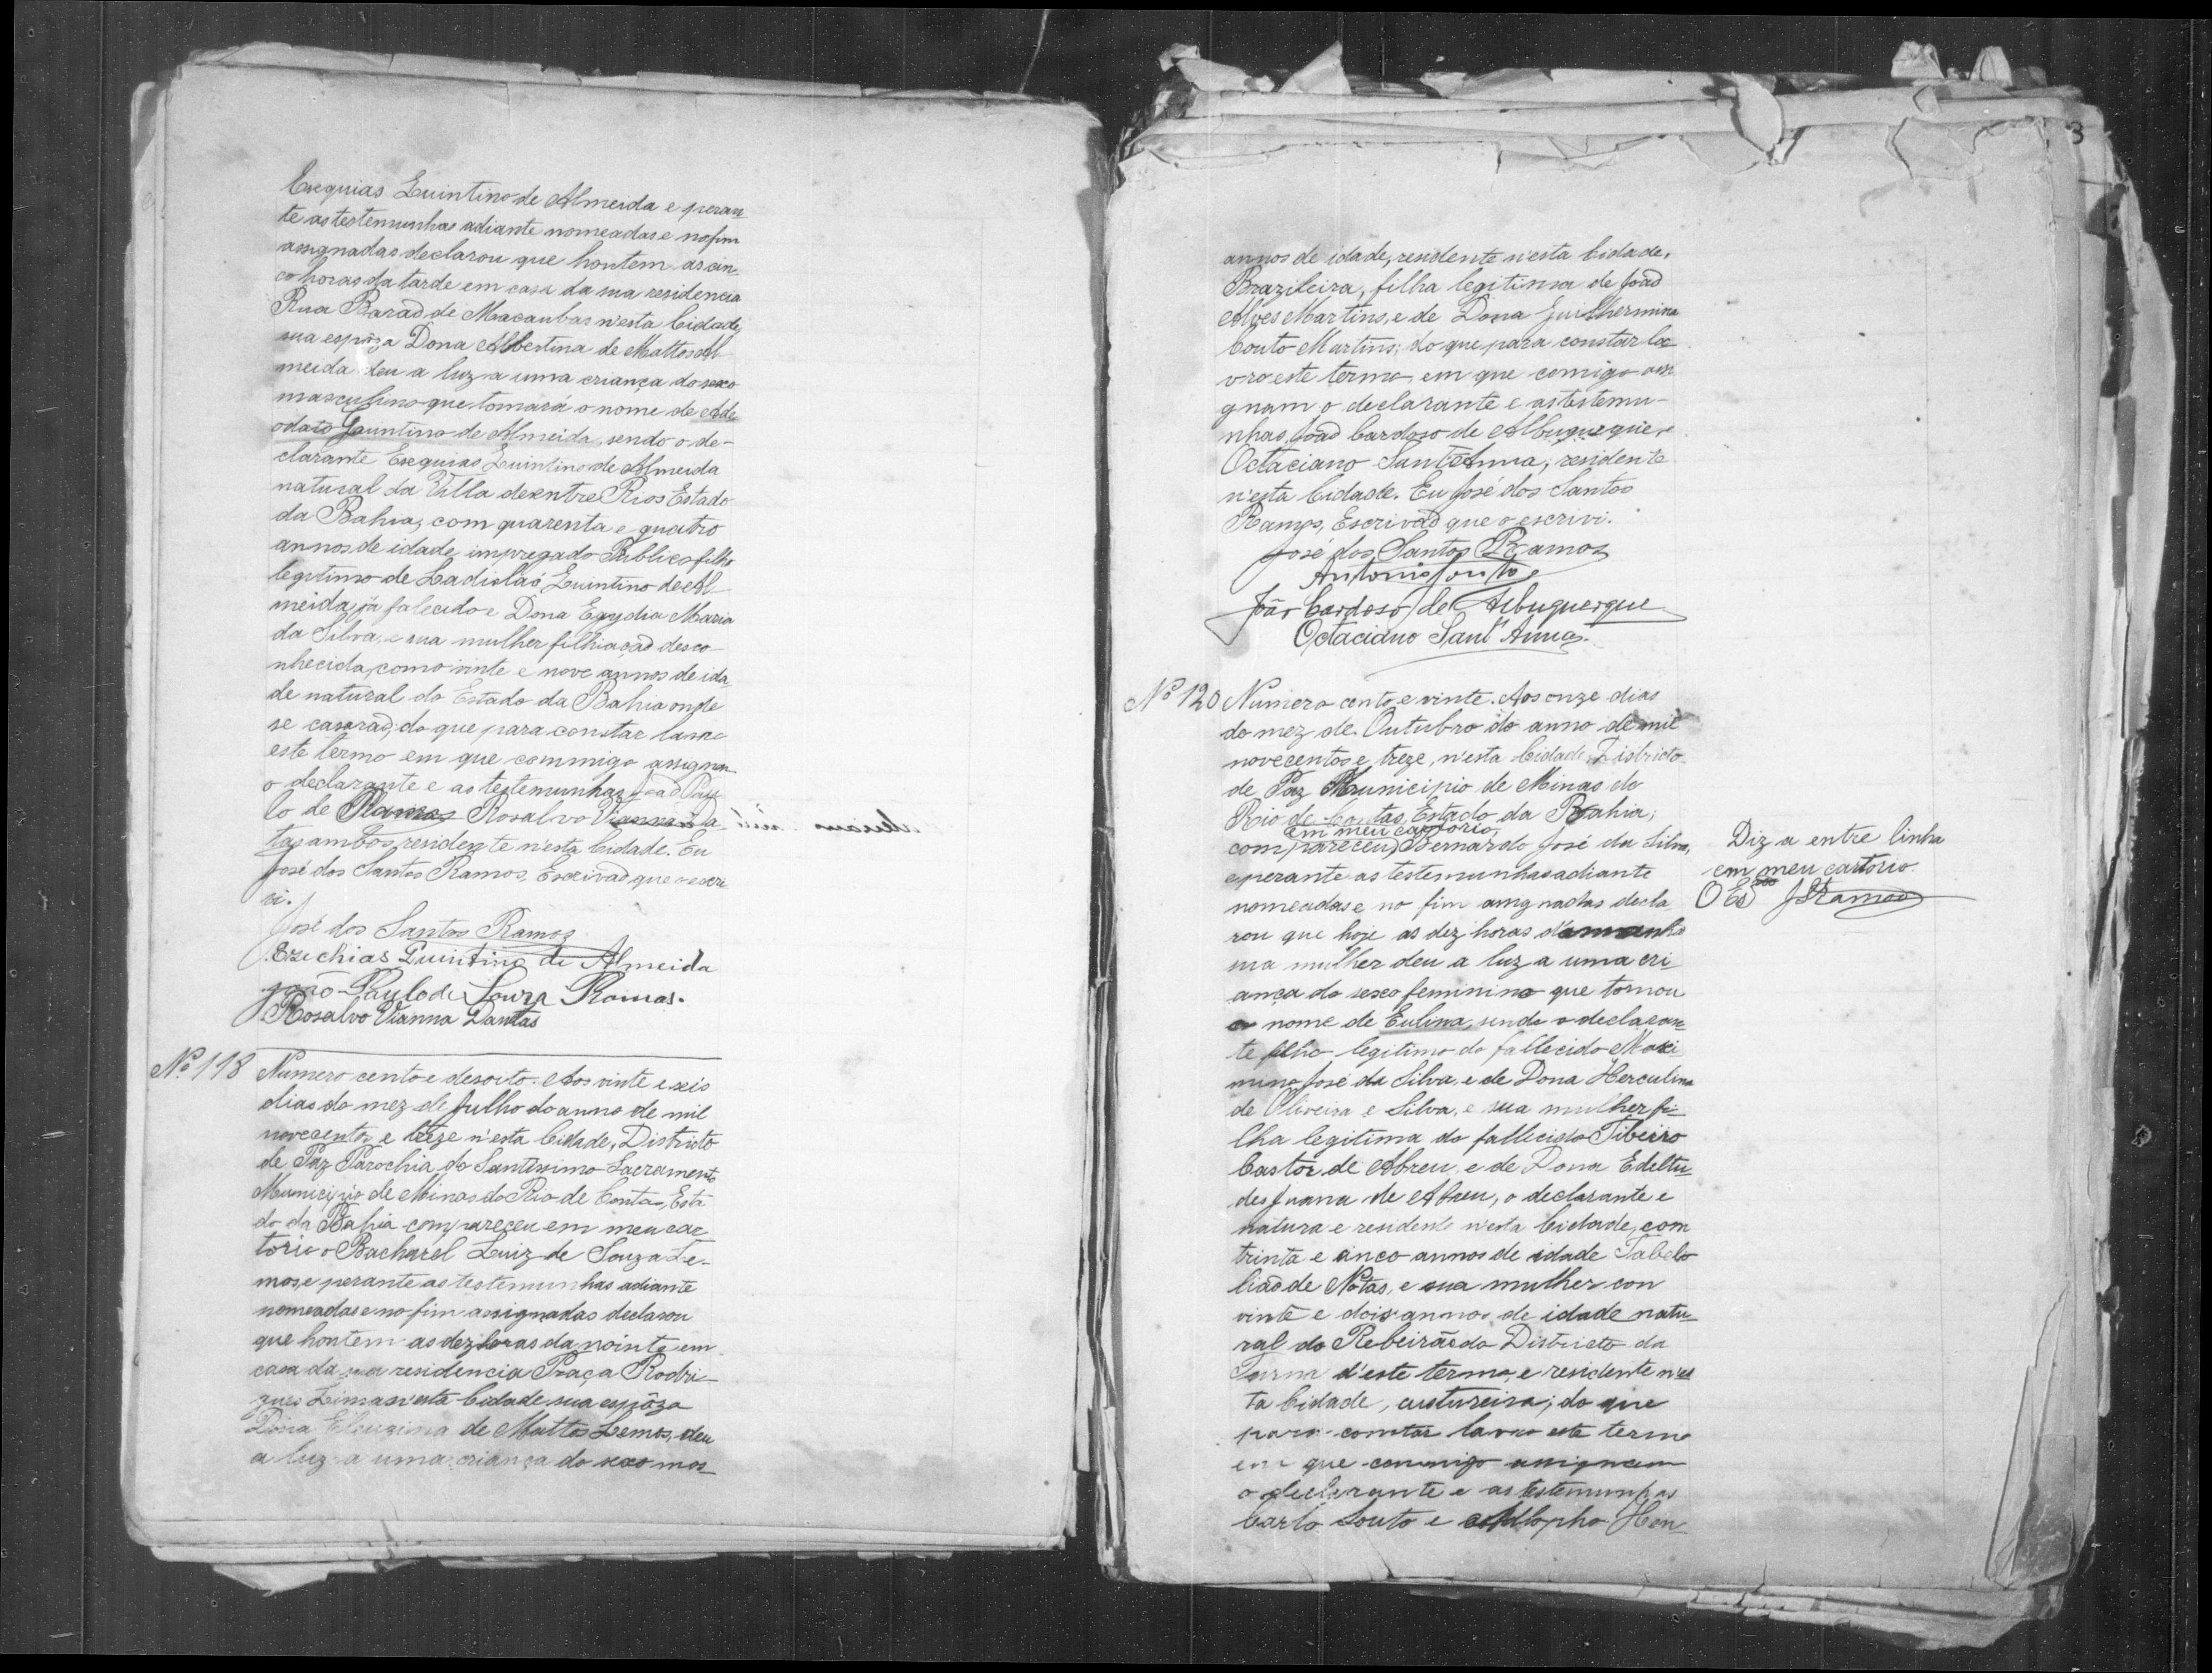 Esequias Quintino de Almeida e peran
te as testemunhas adiante nomeadas e no fim
assignadas declarou que hontem as cin
co horas da tarde em casa da sua residencia
Rua Barão de Macaubas n'esta Cidade,
sua espôza Dona Albertina de Mattos Al
meida deu a luz a uma criança do sexo
masculino que tomará o nome de Ade
odato Quintino de Almeida, sendo o de-
clarante Esequias Quintino de Almeida
natural da Villa de entre Rios Estado
da Bahia, com quarenta e quatro
annos de idade impregado Publico filho
legitimo de Ladisláo Quintino de Al
meida já falecido e Dona Egydia Maria
da Silva, e sua mulher filhiação desco
nhecida, com vinte e nove annos de ida
de natural do Estado da Bahia onde
se casarão; do que para constar lavro
este termo em que commigo assignam
o declarante e as testemunhas João Pau
lo de Ramos Rosalvo Vianna Da
tas ambos residente n'esta Cidade. Eu
José dos Santos Ramos, Escrivão que o escre
vi.
José dos Santos Ramos
Ezechias Quintino de Almeida
João Paulo de Souza Ramos.
Rosalvo Vianna Dantas
Nº 118 Numero cento e desoito. Aos vinte e seis
dias do mez de Julho do anno de mil
novecentos e treze n'esta Cidade, Districto
de Paz Parochia do Santissimo Sacramento
Municipio de Minas do Rio de Contas, Esta
do da Bahia compareceu em meu car
torio o Bacharel Luiz de Souza Le-
mos, e perante as testemunhas adiante
nomeadas e no fim assignadas declarou
que hontem as dez horas da nointe em
casa da sua residencia Praça Rodri-
gues Lima n'esta Cidade sua espôza
Dona de Mattos Lemos, deu
a luz a uma criança do sexo mas
3
annos de idade, residente n'esta Cidade,
Brazileira, filha legitima de João
Alves Martins, e de Dona Guilhermina
Couto Martins; do que para constar la
vro este termo, em que comigo assi
gnam o declarante e as testemu-
nhas João Cardoso de Albuquerque, e
Octaciano Sant'Anna, residente
n'esta Cidade. Eu José dos Santos
Ramos, Escrivão que o escrivi.
José dos Santos Ramos
Antonio Souto
João Cardoso de Albuquerque
Octaciano Sant'Anna.
Nº 120 Numero cento e vinte. Aos onze dias
do mez de Outubro do anno de mil
novecentos e treze, n'esta Cidade, Districto
de Paz Municipio de Minas do
Rio de Contas, Estado da Bahia,
em meu cartorio,
compareceu Bernardo José da Silva,
e perante as testemunhas adiante
nomeadas e no fim assignadas decla
rou que hoje as dez horas d'amanha
sua mulher deu a luz a uma cri
ança do sexo feminino que tomou
o nome de Eulina, sendo o declaran
te filho legitimo do fallecido Maxi
mino José da Silva, e de Dona Herculina
de Oliveira e Silva, e sua mulher fi
lha legitima do fallecido Tiberio
Castor de Abreu, e de Dona Edeltu
des Juana de Abreu, o declarante e
natura e residente n'esta Cidade, com
trinta e cinco annos de idade Tabelo
lião de Notas, e sua mulher con
vinte e dois annos de idade natu
ral do Rebeirão do Districto da
Furna d'este termo, e residente n'es
ta Cidade, custureira; do que
para constar lavro este termo
em que commigo assignam
o declarante e as testemunhas
Carlo Souto e Adolpho Hen
Diz a entre linha
em meu cartorio.
O Esvao JSRamos